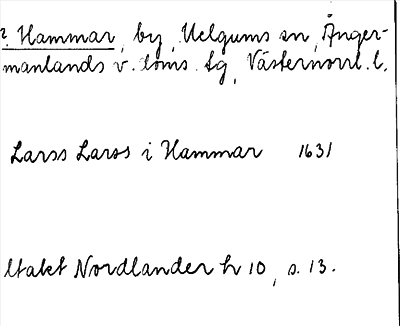 2. Hammar, by, Helgums sn, Ånger-
manlands v. doms. tg, Västernorrl. l.
Larss Larss i Hammar 1631
Utabet Nordlander h 10, s. 13.